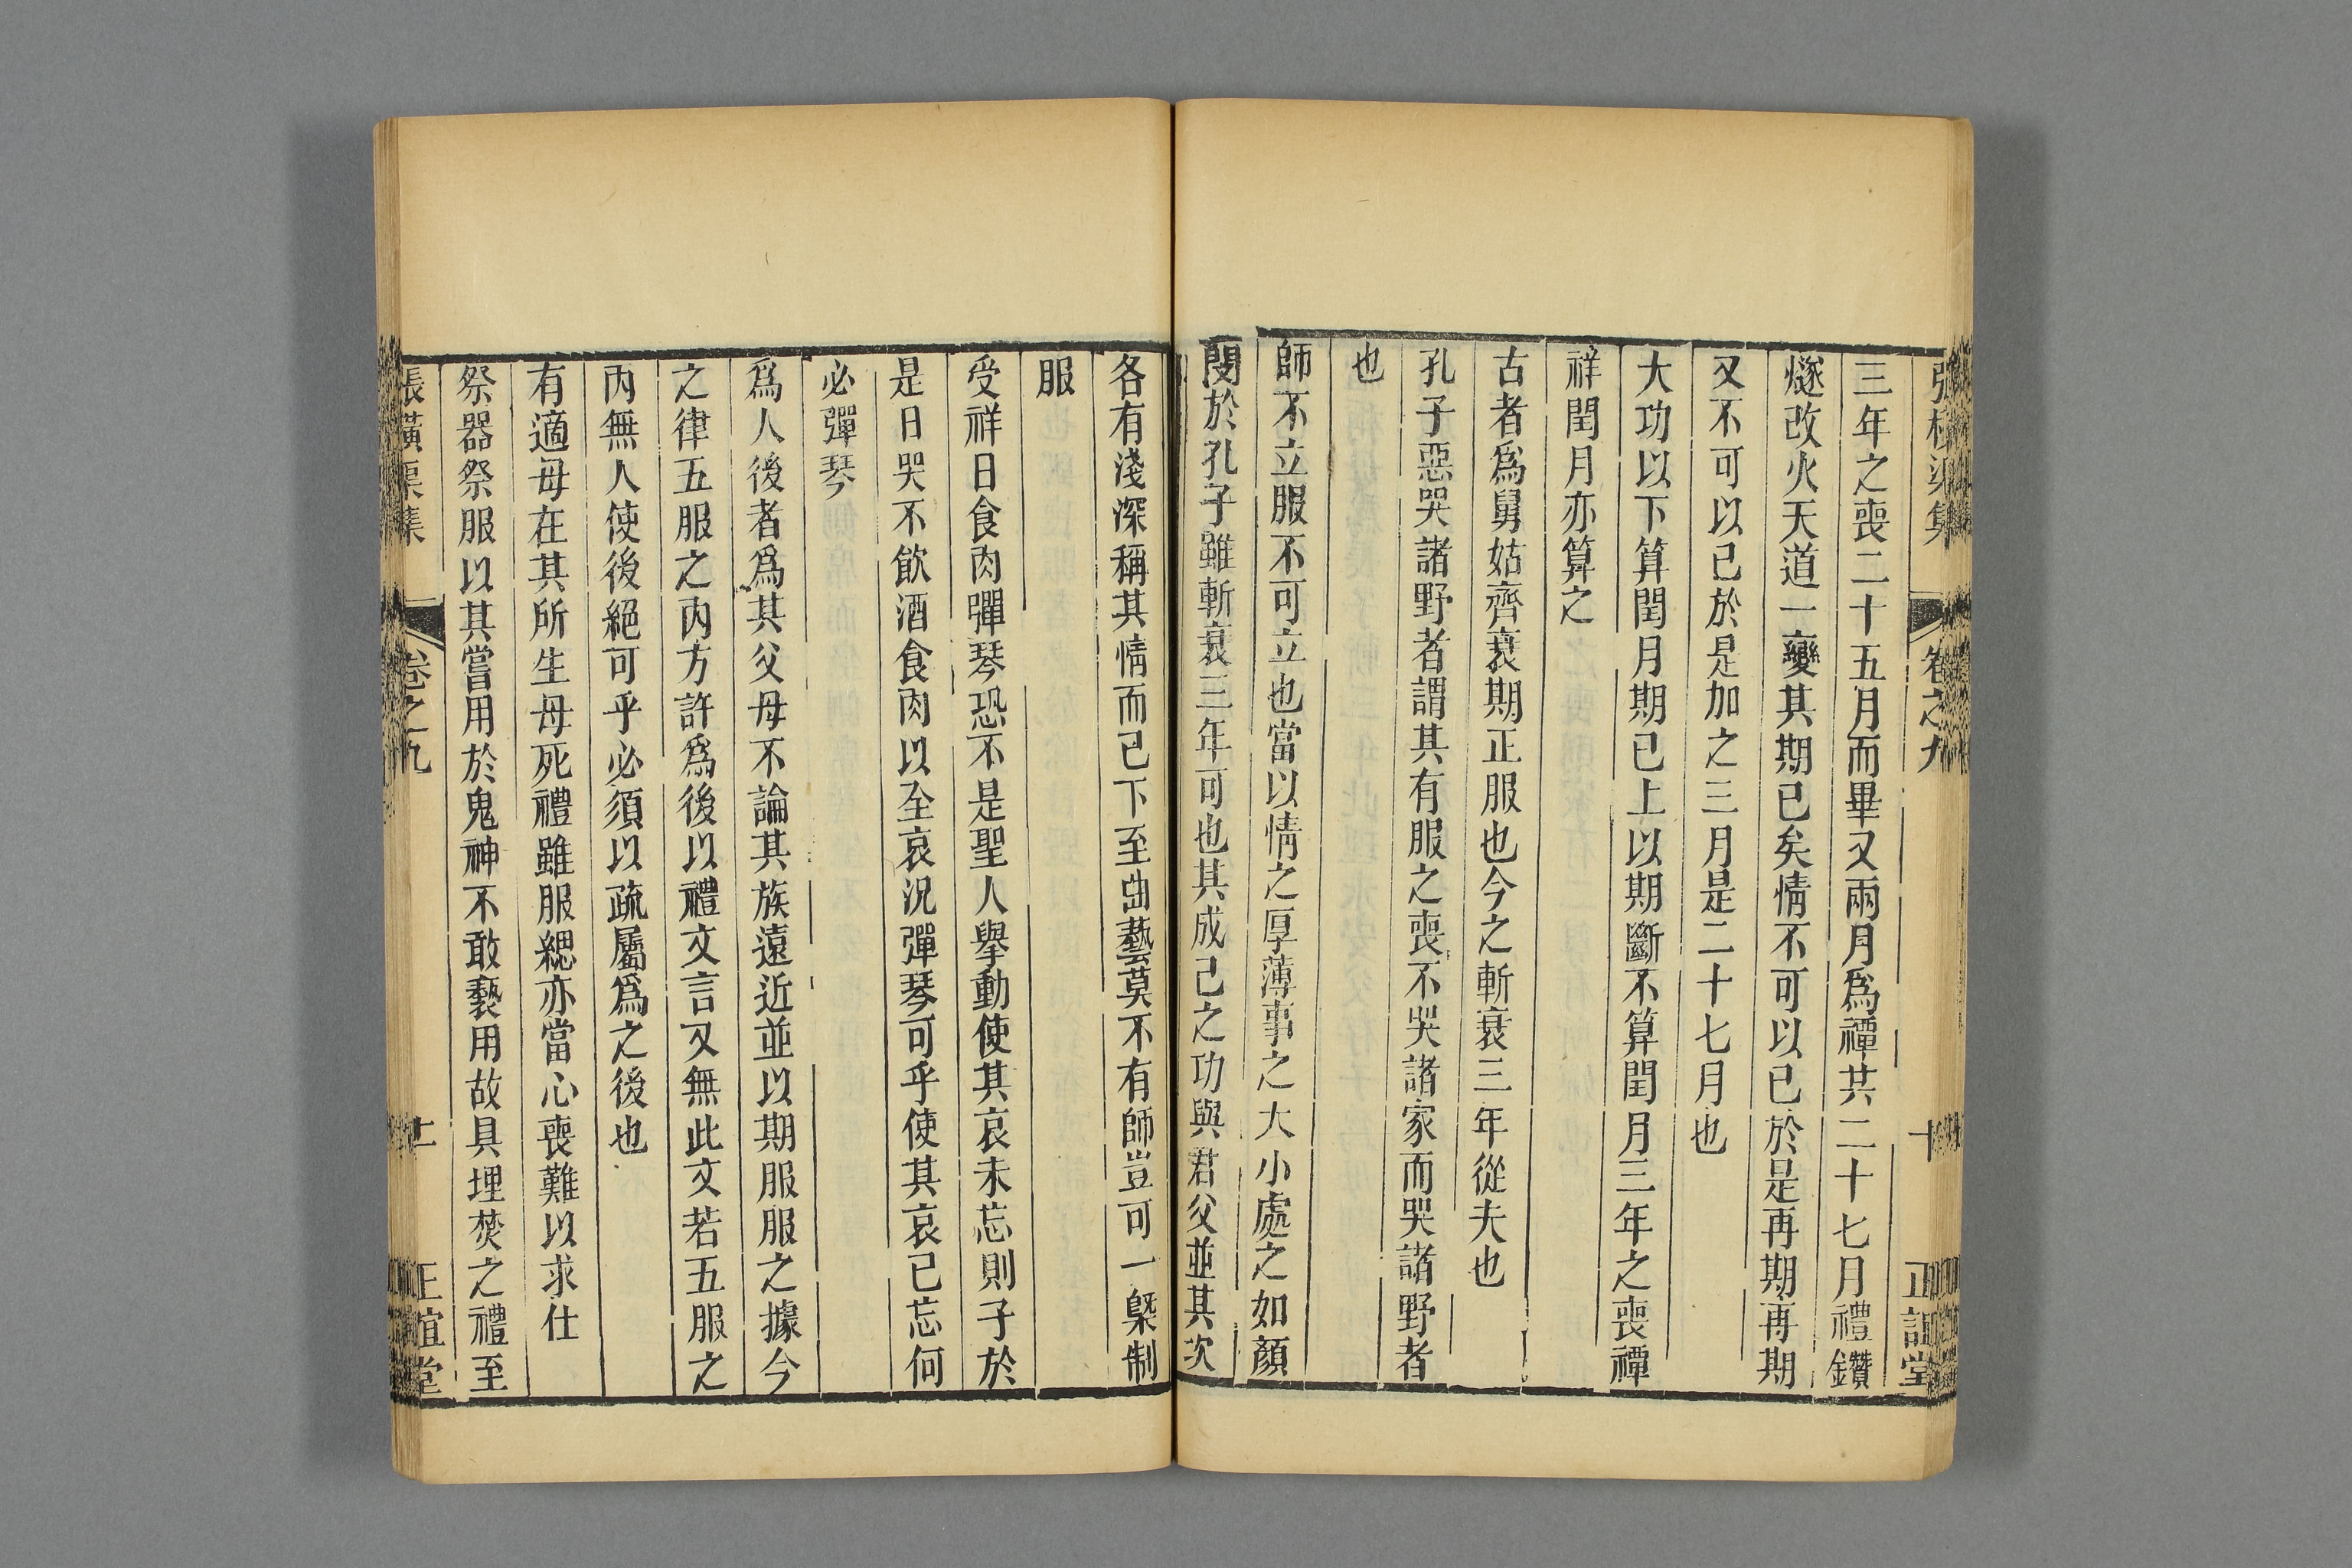 張橫渠集 卷之九 十 正誼堂
三年之喪二十五月而畢又兩月爲禫共二十七月禮鑽
燧改火天道一變其期已矣情不可以已於是再期再期
又不可以已於是加之三月是二十七月也
大功以下算閏月期已上以期斷不算閏月三年之喪禫
祥閏月亦算之
古者爲舅姑齊衰期正服也今之斬衰三年從夫也
孔子惡哭諸野者謂其有服之喪不哭諸家而哭諸野者
也
師不立服不可立也當以情之厚薄事之大小處之如顏
閔於孔子雖斬衰三年可也其成己之功與君父並其次
各有淺深稱其情而已下至曲藝莫不有師豈可一槩制
服
受祥日食肉彈琴恐不是聖人舉動使其哀未忘則子於
是日哭不飲酒食肉以全哀況彈琴可乎使其哀已忘何
必彈琴
爲人後者爲其父母不論其族遠近並以期服服之據今
之律五服之內方許爲後以禮文言又無此文若五服之
內無人使後絕可乎必須以疏屬爲之後也
有適母在其所生母死禮雖服緦亦當心喪難以求仕
祭器祭服以其嘗用於鬼神不敢褻用故具埋焚之禮至
張橫渠集 卷之九 十一 正誼堂